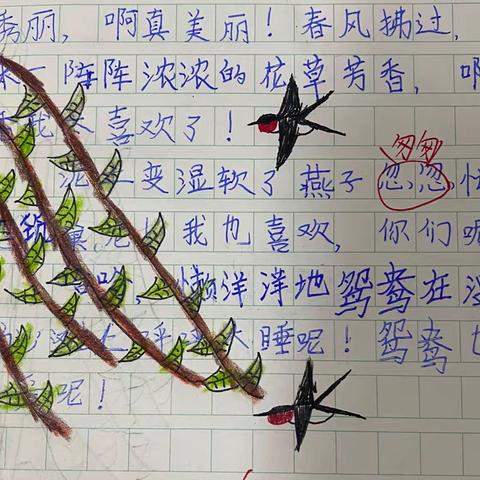 秀丽，啊真美丽！春风拂过，
来一阵阵浓浓的花草芳香，啊
我太喜欢了！
匆匆
泥 变湿软了燕子忽忽，忙
筑巢 我也喜欢，你们呢
懒洋洋地鸳鸯在沙
上呼呼大睡呢！鸳鸯也
呢！